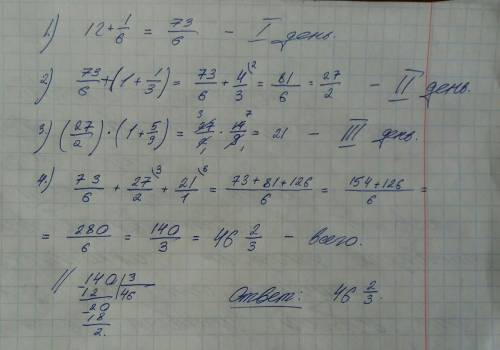 1) 12 + 1/6 = 73/6 – I день.
2) 73/6 + (1 + 1/3) = 73/6 + 4/3 \2 = 81/6 = 27/2 – II день.
3) (27/2) · (1 + 5/9) = 3 27/2 1 · 14 7/9 1 = 21 – III день.
4) 73/6 + 27/2 \3 + 21/1 \6 = 73 + 81 + 126/6 = 154 + 126/6 =
= 280/6 = 140/3 = 46 2/3 – всего.
// 140 | 3
12 | 46
-20
18
2.
Ответ: 46 2/3.